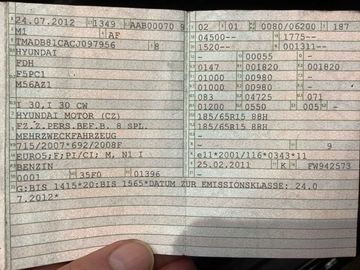 24.07.2012 1349 AAB00070 8
M1 AF
TMADB81CACJ097956 8
HYUNDAI
FDH
F5PC1
M56AZ1
I 30,I 30 CW
HYUNDAI MOTOR (CZ)
FZ.Z.PERS.BEF.B. 8 SPL.
MEHRZWECKFAHRZEUG
715/2007*692/2008F
EURO5;F;PI/CI; M, N1 I
BENZIN
0001 35F0 01396
G:BIS 1415*20:BIS 1565*DATUM ZUR EMISSIONSKLASSE: 24.0
7.2012*
02 01 0080/06200 187
04500-- 1775--
1520-- 001311--
- 00055 --
0147 001820 001820
01000 00980 --
01000 00980 --
083 04725 071
01200 0550 005 -
185/65R15 88H
185/65R15 88H
-
- 9
e11*2001/116*0343*11
25.02.2011 K FW942573